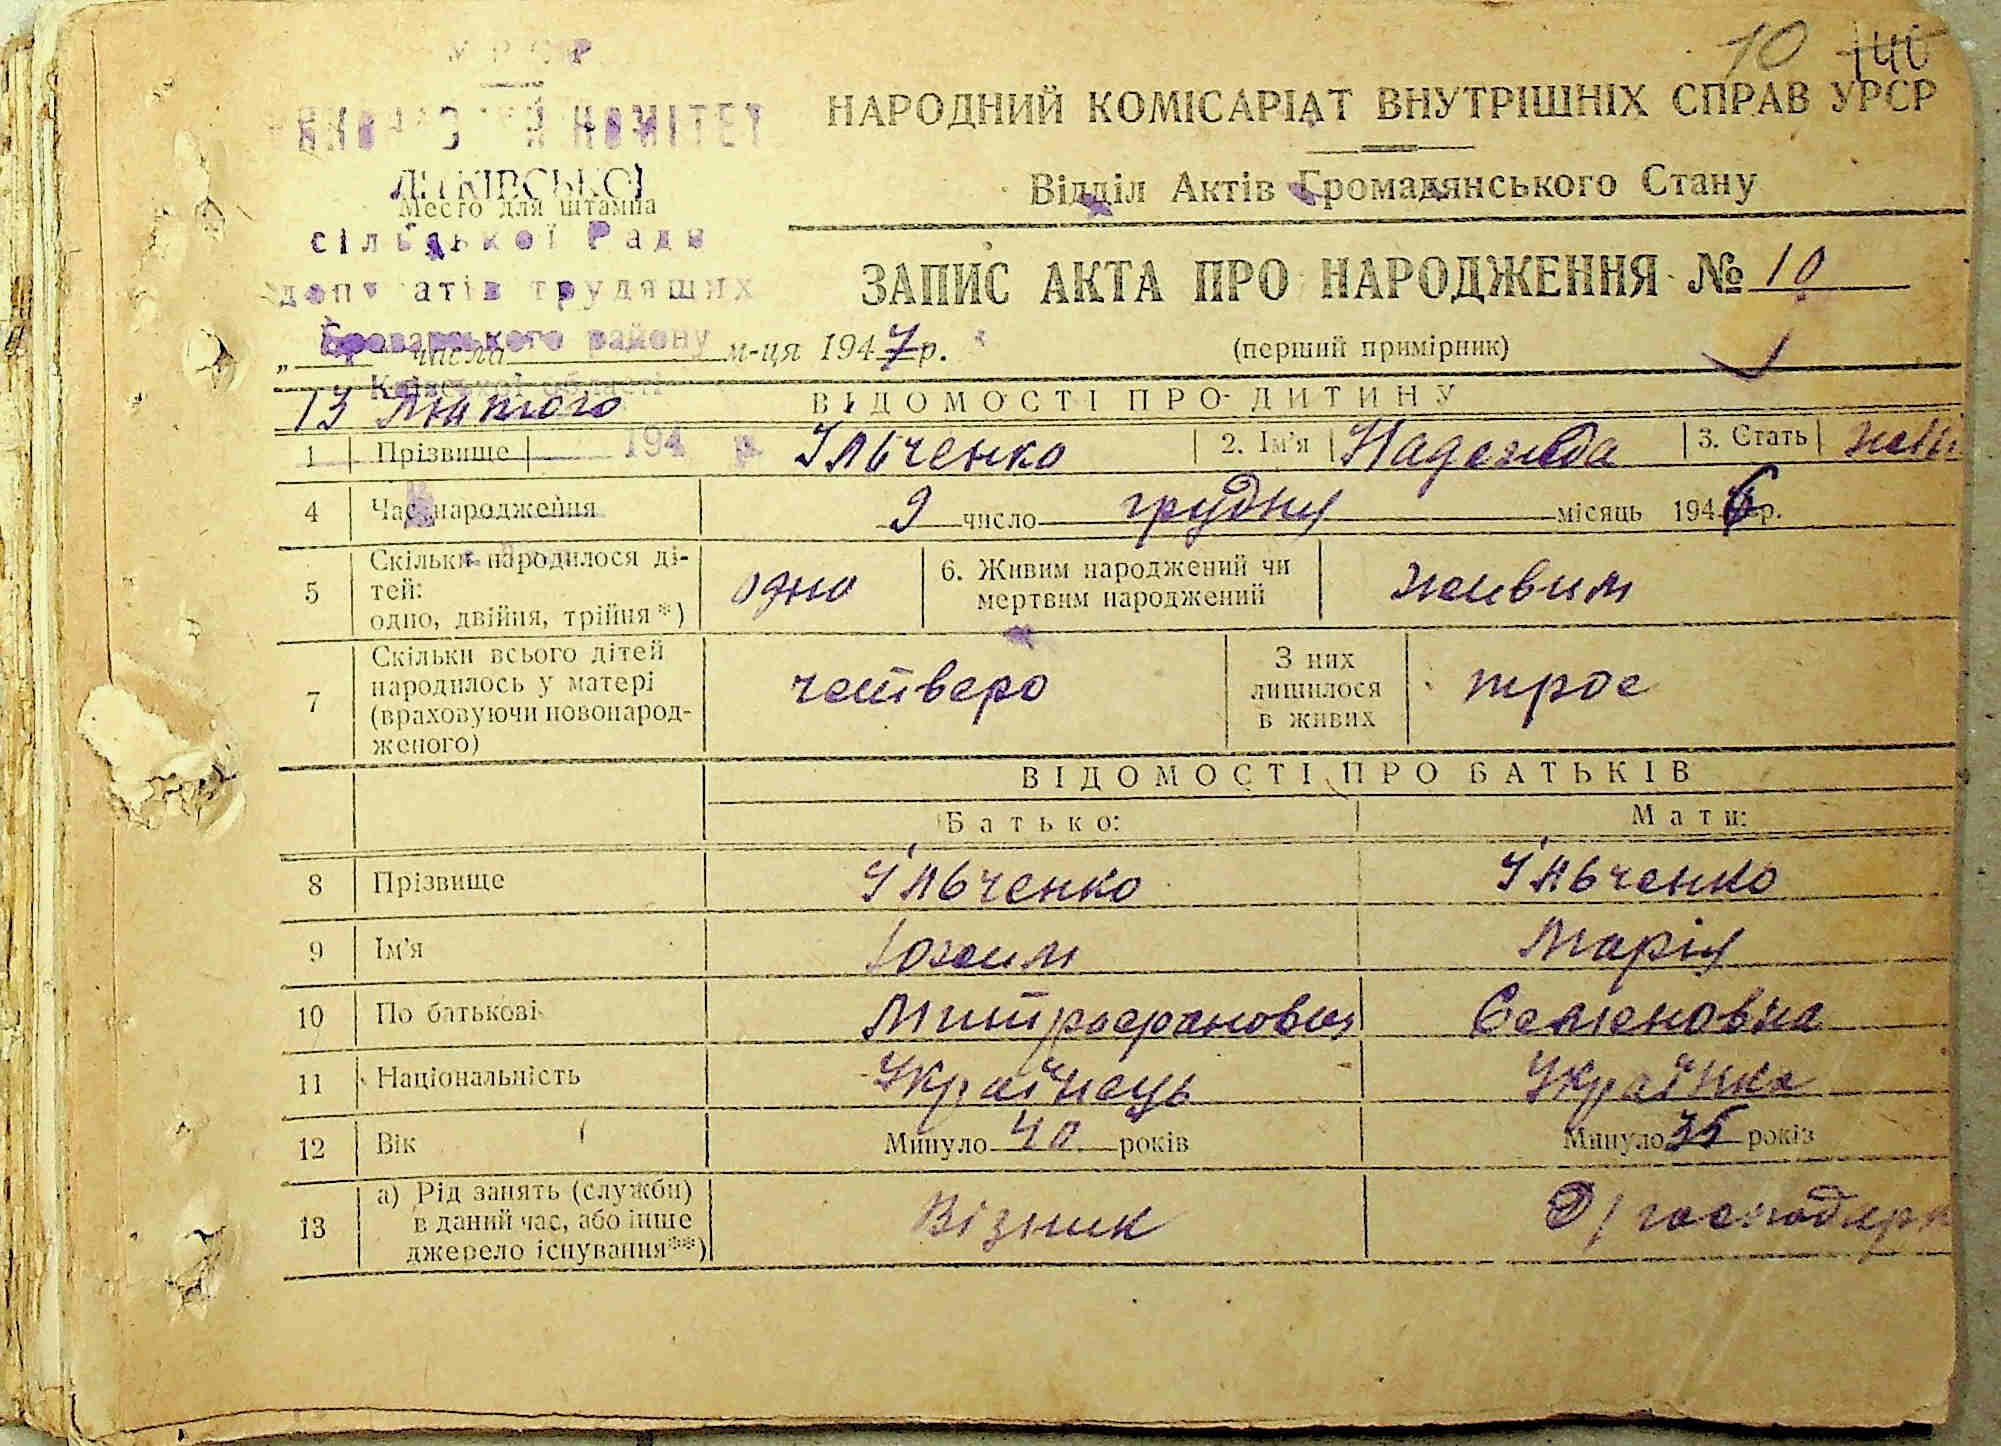 10 140
УРСР
ВИКОНАВЧИЙ КОМІТЕТ
НАРОДНИЙ КОМІСАРІАТ ВНУТРІШНІХ СПРАВ УРСР
ЛІТКІВСЬКОЇ
Место для штампа
Відділ Актів Громадянського Стану
сільської Ради
депутатів трудящих
ЗАПИС АКТА ПРО НАРОДЖЕННЯ № 10
Броварського району
„ числа м-ця 1947 р.
(перший примірник)
Київської області
13 Лютого
ВІДОМОСТІ ПРО ДИТИНУ
194 р.
1 Прізвище Ільченко 2. Ім'я Надежда 3. Стать жін
4 Час народження 9 число грудня місяць 1946 р.
5 Скільки народилося ді-
тей:
одно, двійня, трійня *) одно 6. Живим народжений чи
мертвим народжений живим
7 Скільки всього дітей
народилось у матері
(враховуючи новонарод-
женого) четверо З них
лишилося
в живих троє
ВІДОМОСТІ ПРО БАТЬКІВ
Батько: Мати:
8 Прізвище Ільченко Ільченко
9 Ім'я Юхим Марія
10 По батькові Митрофанович Семеновна
11 Національність Українець Українка
12 Вік Минуло 40 років Минуло 35 років
13 а) Рід занять (служби)
в даний час, або інше
джерело існування**) Візник Д/господарк